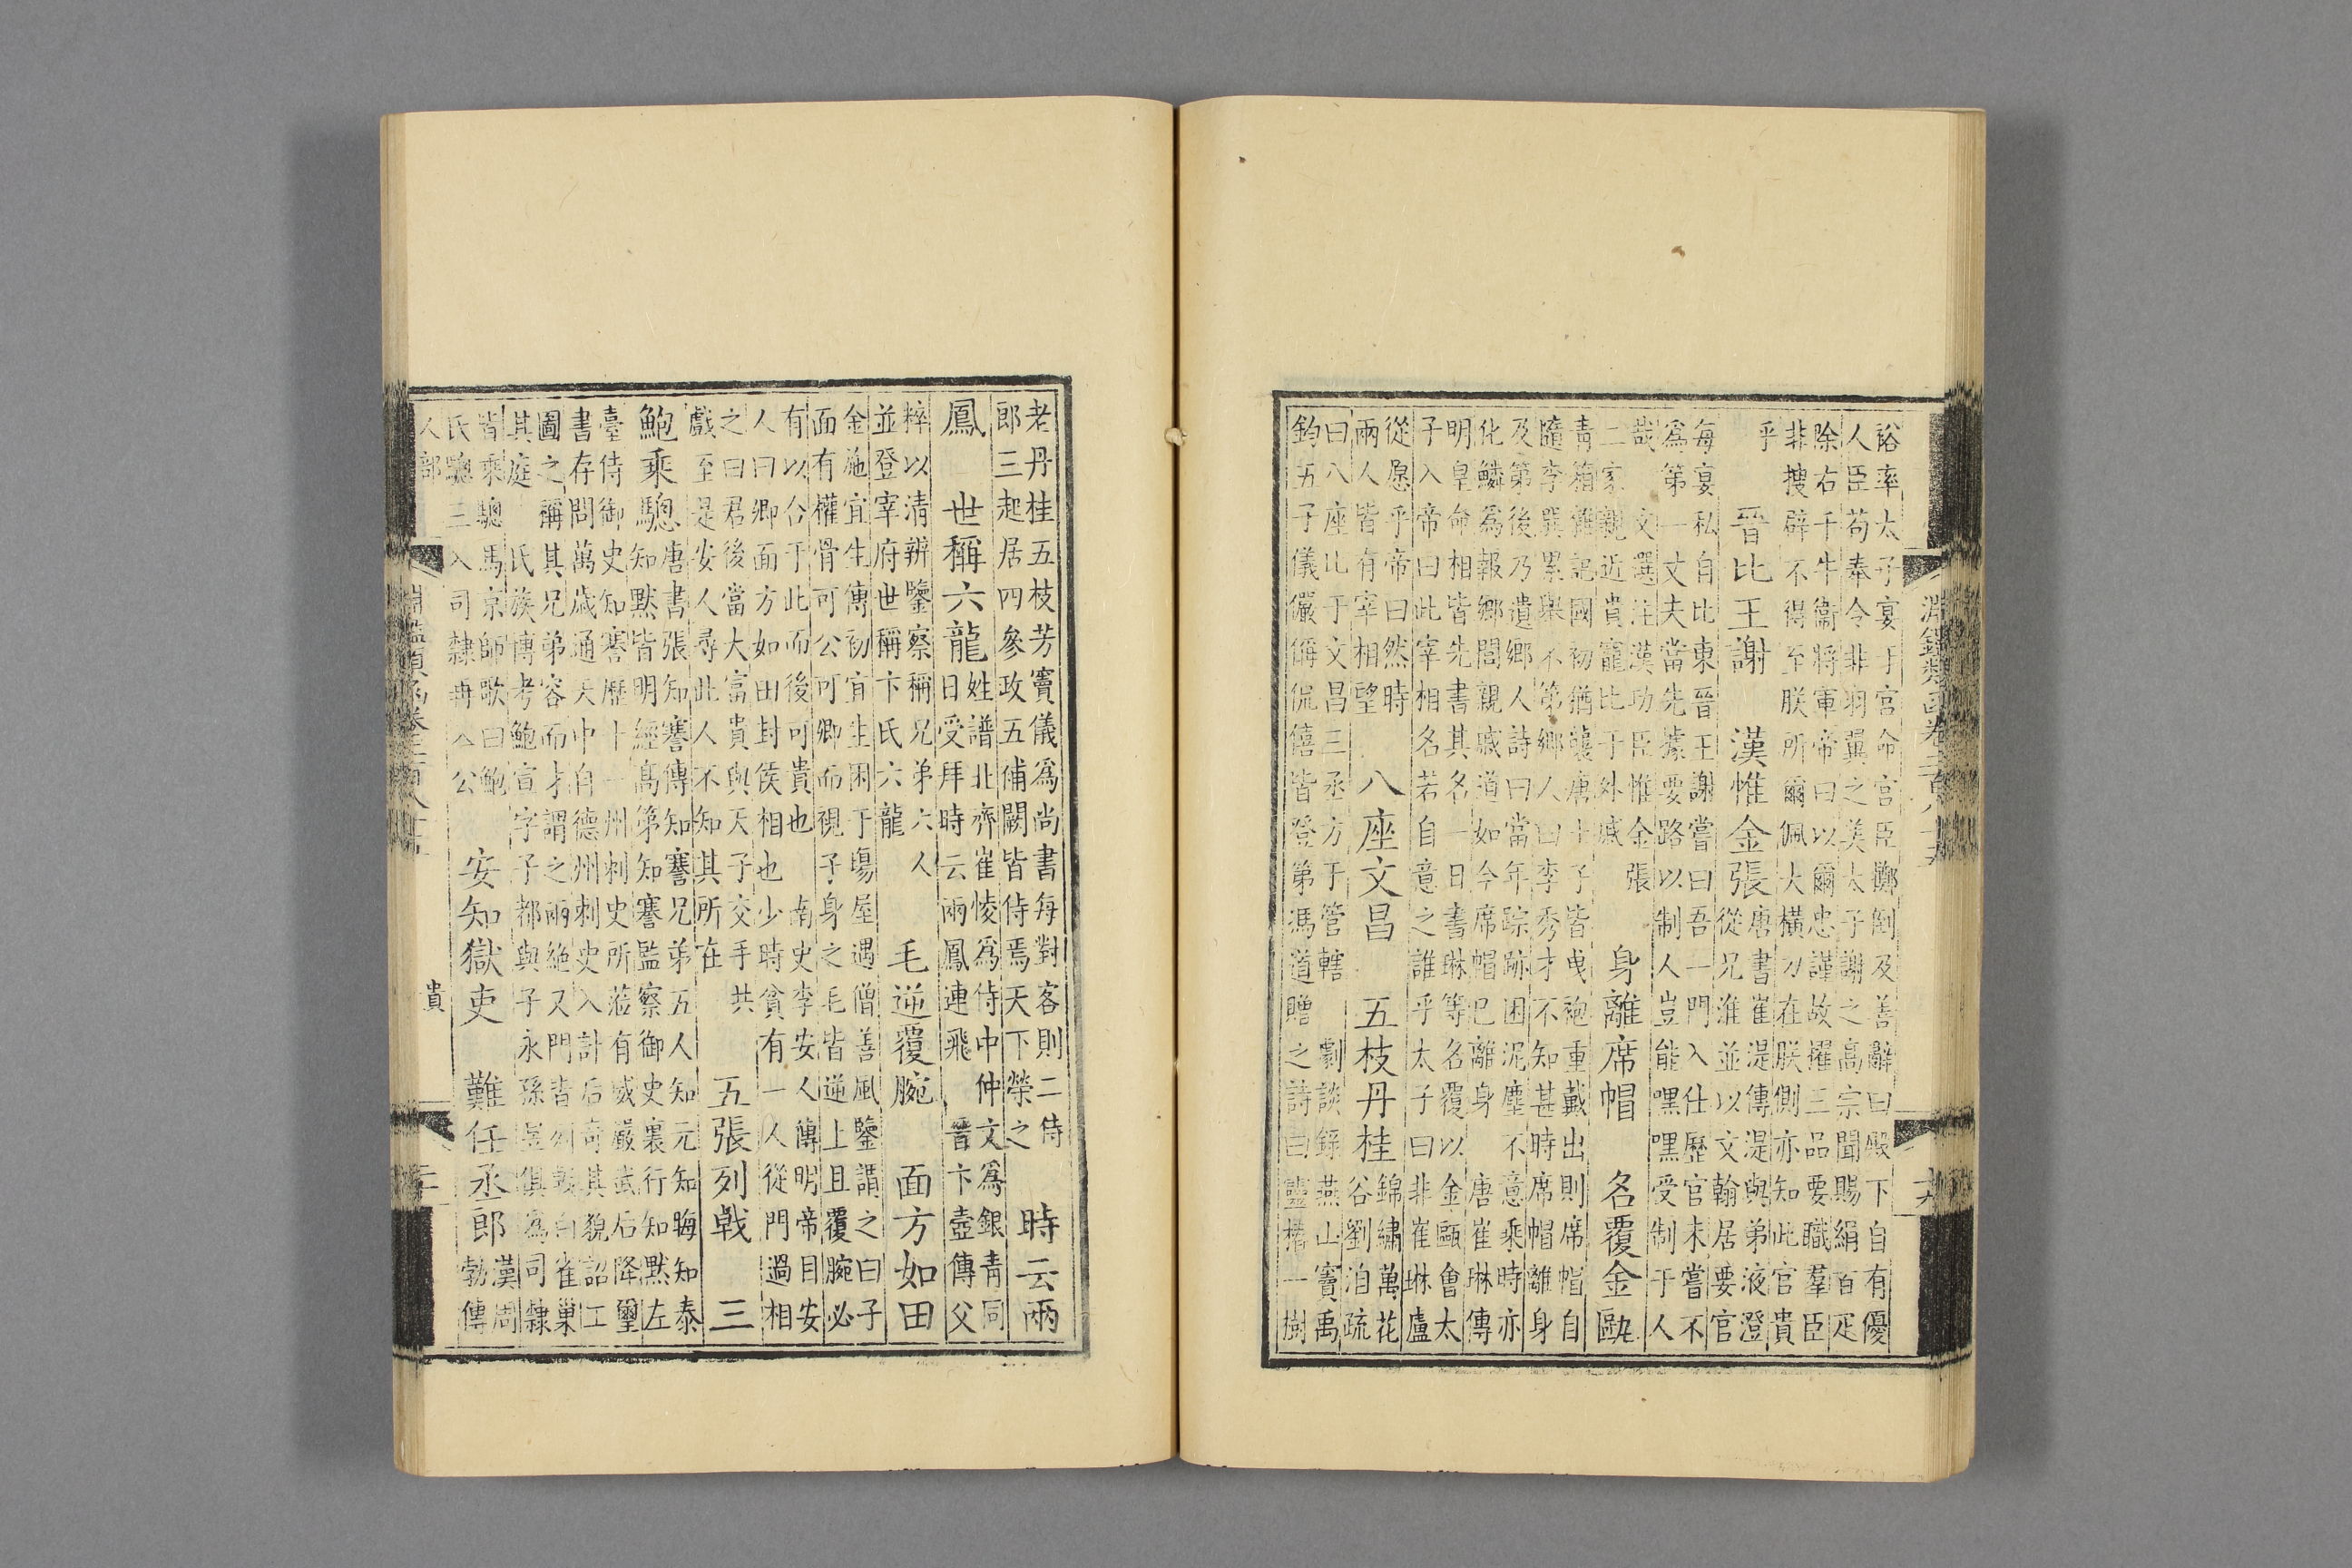 淵鑑類函卷二百八十五
十九
裕率太子宴于宫命宫臣擲倒及善辭曰殿下自有優
人臣苟奉令非羽翼之美太子謝之高宗聞賜絹百疋
除右千牛衞將軍帝曰以爾忠謹故擢三品要職羣臣
非搜辟不得至朕所爾佩大橫刀在朕側亦知此官貴
乎
晉比王謝　漢惟金張
唐書崔湜傳湜與弟液澄
從兄淮並以文翰居要官
每宴私自比東晉王謝嘗曰吾一門入仕歷官未嘗不
為第一丈夫當先據要路以制人豈能嘿嘿受制于人
哉　文選注漢功臣惟金張
二家親近貴寵比于外戚
身離席帽　名覆金甌
青箱雜記國初猶襲唐士子皆曳袍重戴出則席帽自
隨李巽累舉不第鄉人曰李秀才不知甚時席帽離身
及第後乃遺鄉人詩曰當年踪跡困泥塵不意乘時亦
化鱗為報鄉閭親戚道如今席帽已離身　唐崔琳傳
明皇命相皆先書其名一日書琳等名覆以金甌會太
子入帝曰此宰相名若自意之誰乎太子曰非崔琳盧
從愿乎帝曰然時
兩人皆有宰相望
八座文昌　五枝丹桂
錦繡萬花
谷劉洎疏
曰八座比于文昌三丞方于管轄　劇談錄燕山竇禹
鈞五子儀儼偁侃僖皆登第馮道贈之詩曰靈椿一樹
老丹桂五枝芳竇儀為尚書每對客則二侍
郎三起居四參政五補闕皆侍焉天下榮之
時云兩
鳳　世稱六龍
姓譜北齊崔㥄為侍中仲文為銀青同
日受拜時云兩鳳連飛　晉卞壺傳父
粹以清辨鑒察稱兄弟六人
並登宰府世稱卞氏六龍
毛逆覆腕　面方如田
金施宜生傳初宜生困于場屋遇僧善風鑒謂之曰子
面有權骨可公可卿而視子身之毛皆逆上且覆腕必
有以合于此而後可貴也　南史李安人傳明帝目安
人曰卿面方如田封侯相也少時貧有一人從門過相
之曰君後當大富貴與天子交手共
戲至是安人尋此人不知其所在
五張列戟　三
鮑乘驄
唐書張知謇傳知謇兄弟五人知元知晦知泰
知默皆明經高第知謇監察御史裏行知默左
臺侍御史知謇歷十一州刺史所蒞有威嚴武后降璽
書存問萬歲通天中自德州刺史入計后奇其貌詔工
圖之稱其兄弟容而才謂之兩絕又門皆列戟白雀巢
其庭　氏族傳考鮑宣字子都與子永孫昱俱為司隸
皆乘驄馬京師歌曰鮑
氏驄三入司隸再入公
安知獄吏　難任丞郎
漢周
勃傳
人部
淵鑑類函卷二百八十五
貴
二十